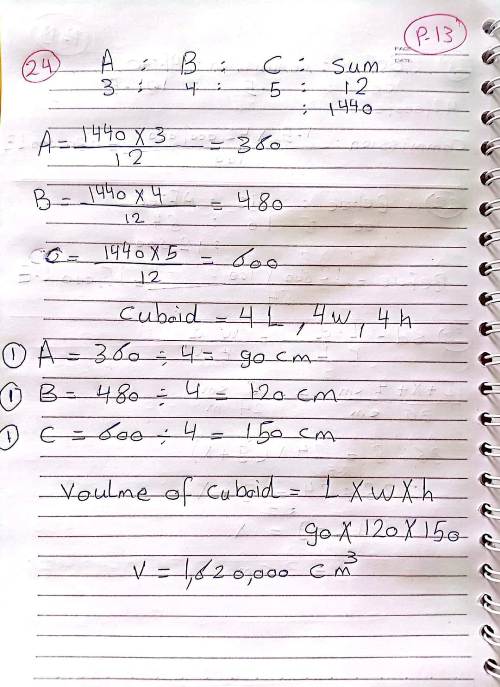 P-13
PAGE
DATE
24 A : B : C : Sum
3 : 4 : 5 : 12
: 1440
A = 1440 X 3 / 12 = 360
B = 1440 X 4 / 12 = 480
C = 1440 X 5 / 12 = 600
Cuboid = 4 L , 4 w , 4 h
1 A = 360 ÷ 4 = 90 cm
1 B = 480 ÷ 4 = 120 cm
1 C = 600 ÷ 4 = 150 cm
Voulme of cuboid = L X w X h
= 90 X 120 X 150
V = 1,620,000 cm³